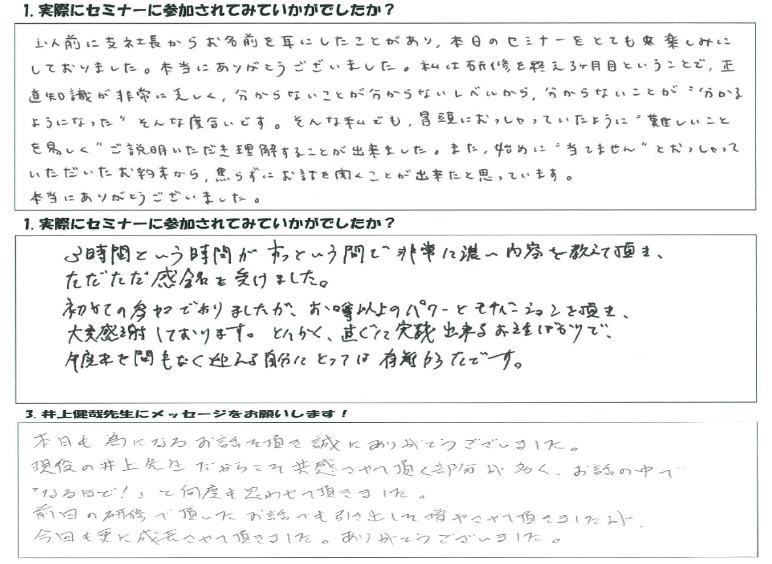 1. 実際にセミナーに参加されてみていかがでしたか？
入社前に支社長からお名前を耳にしたことがあり、本日のセミナーをとても楽しみに
しておりました。本当にありがとうございました。私は研修を終え3ヶ月目ということで、正
直知識が非常に乏しく、分からないことが分からないレベルから、分からないことが“分かる
ようになった” そんな度合いです。そんな私でも、冒頭におっしゃっていたように“難しいこと
を易しく”ご説明いただき理解することが出来ました。また、始めに“当てません”とおっしゃって
いただいたお約束から、焦らずにお話を聞くことが出来たと思っています。
本当にありがとうございました。
1. 実際にセミナーに参加されてみていかがでしたか？
3時間という時間があっという間で非常に濃い内容を教えて頂き、
ただただ感銘を受けました。
初めての参加でありましたが、お噂以上のパワーとモチベーションを頂き、
大変感謝しております。とにかく、直ぐに実践出来るお話ばかりで、
年度末を間もなく迎える自分にとっては有難かったです。
3. 井上健哉先生にメッセージをお願いします！
本日も為になるお話を頂き誠にありがとうございました。
現役の井上先生だからこそ共感させて頂く部分が多く、お話の中で
「なるほど！」と何度も思わせて頂きました。
前回の研修で頂いたお話でも引き出しを増やさせて頂きましたが、
今回も更に成長させて頂きました。ありがとうございました。